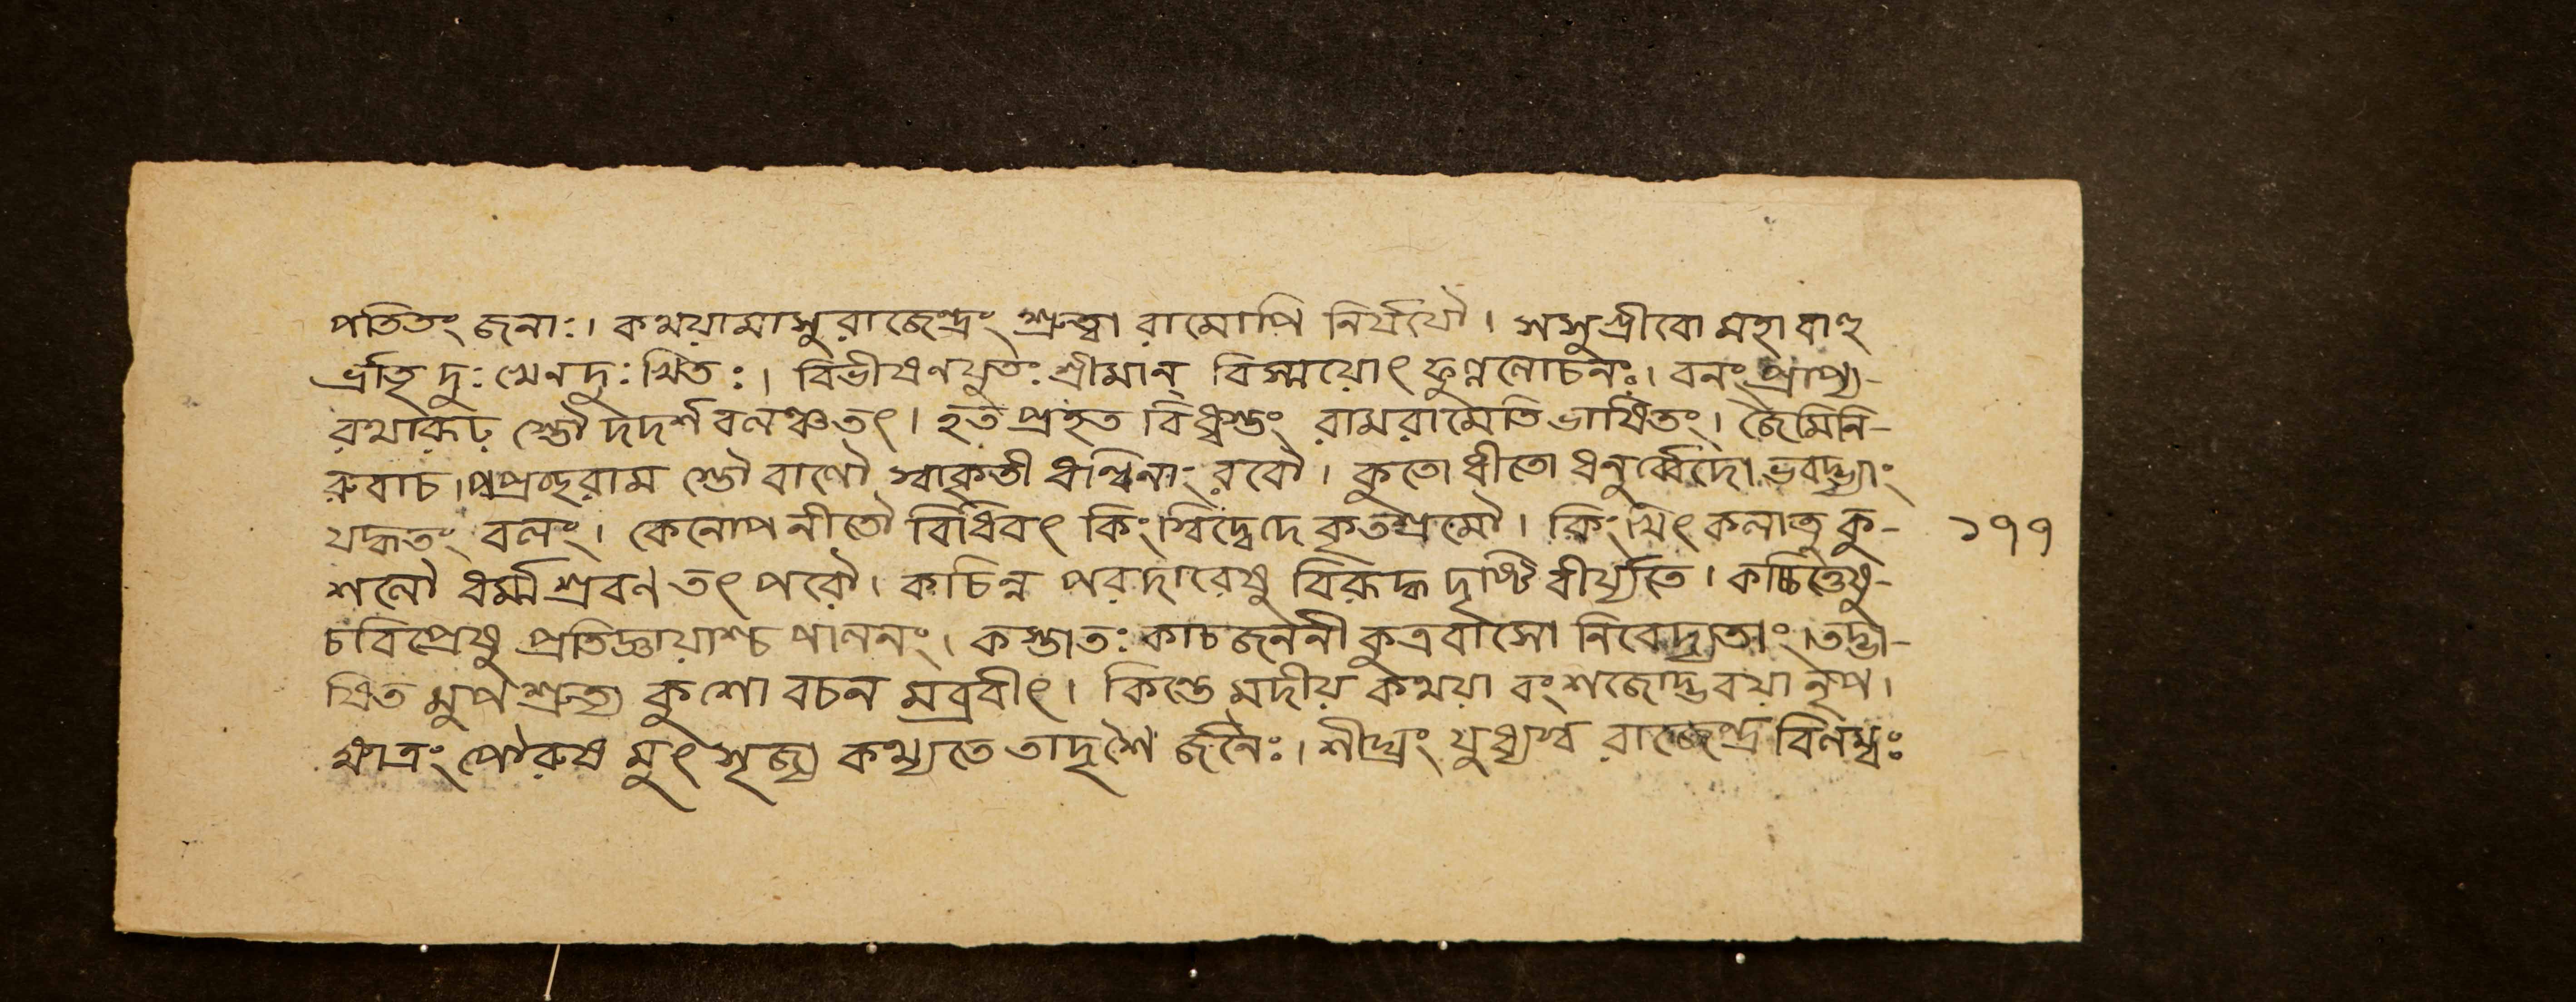 পতিতং জনাঃ। কথয়ামাসুরাজেন্দ্রং শ্রুত্বা রামোপি নির্যযৌ। সসুগ্রীবো মহাবাহু
র্ভ্রাতৃ দুঃখেনদুঃখিতঃ। বিভীষণযুতঃ শ্রীমান্ বিস্ময়োৎফুল্ললোচনঃ। বলং প্রাপ্য-
রথারূঢ় স্তৌ দদর্শ বলঞ্চতৎ। হত প্রহত বিধ্বস্তং রামরামেতি ভাষিতং। জৈমিনি-
রুবাচ। পপ্রচ্ছ রাম স্তৌ বালৌ স্বাকৃতী ধন্বিনাং বরৌ। কুতো ধীতো ধনুর্ব্বেদো ভবদ্ভ্যাং
যদ্ধতং বলং। কেনোপনীতৌ বিধিবৎ কিংস্বিদ্বেদে কৃতশ্রমৌ। কিংস্বিৎ কলাসু কু- ১৭৭
শলৌ ধর্ম্মশ্রবণ তৎপরৌ। কচিন্ন পরদারেষু বিরূদ্ধ দৃষ্টি বীর্য্যতে। কচ্চিত্তেষু-
চবিপ্রেষু প্রতিজ্ঞায়াশ্চ পালনং। কস্তাতঃ কাচজননী কুত্রবাসো নিবেদ্যতাং। তদ্ভা-
ষিত মুপশ্রুত্য কুশো বচন মব্রবীৎ। কিন্তে মদীয় কথয়া বংশজোদ্ভবয়া নৃপ।
ক্ষাত্রং পৌরুষ মুৎসৃজ্য কথ্যতে তাদৃশৈ র্জনৈঃ। শীঘ্রং যুধ্যস্ব রাজেন্দ্র বিলম্বঃ